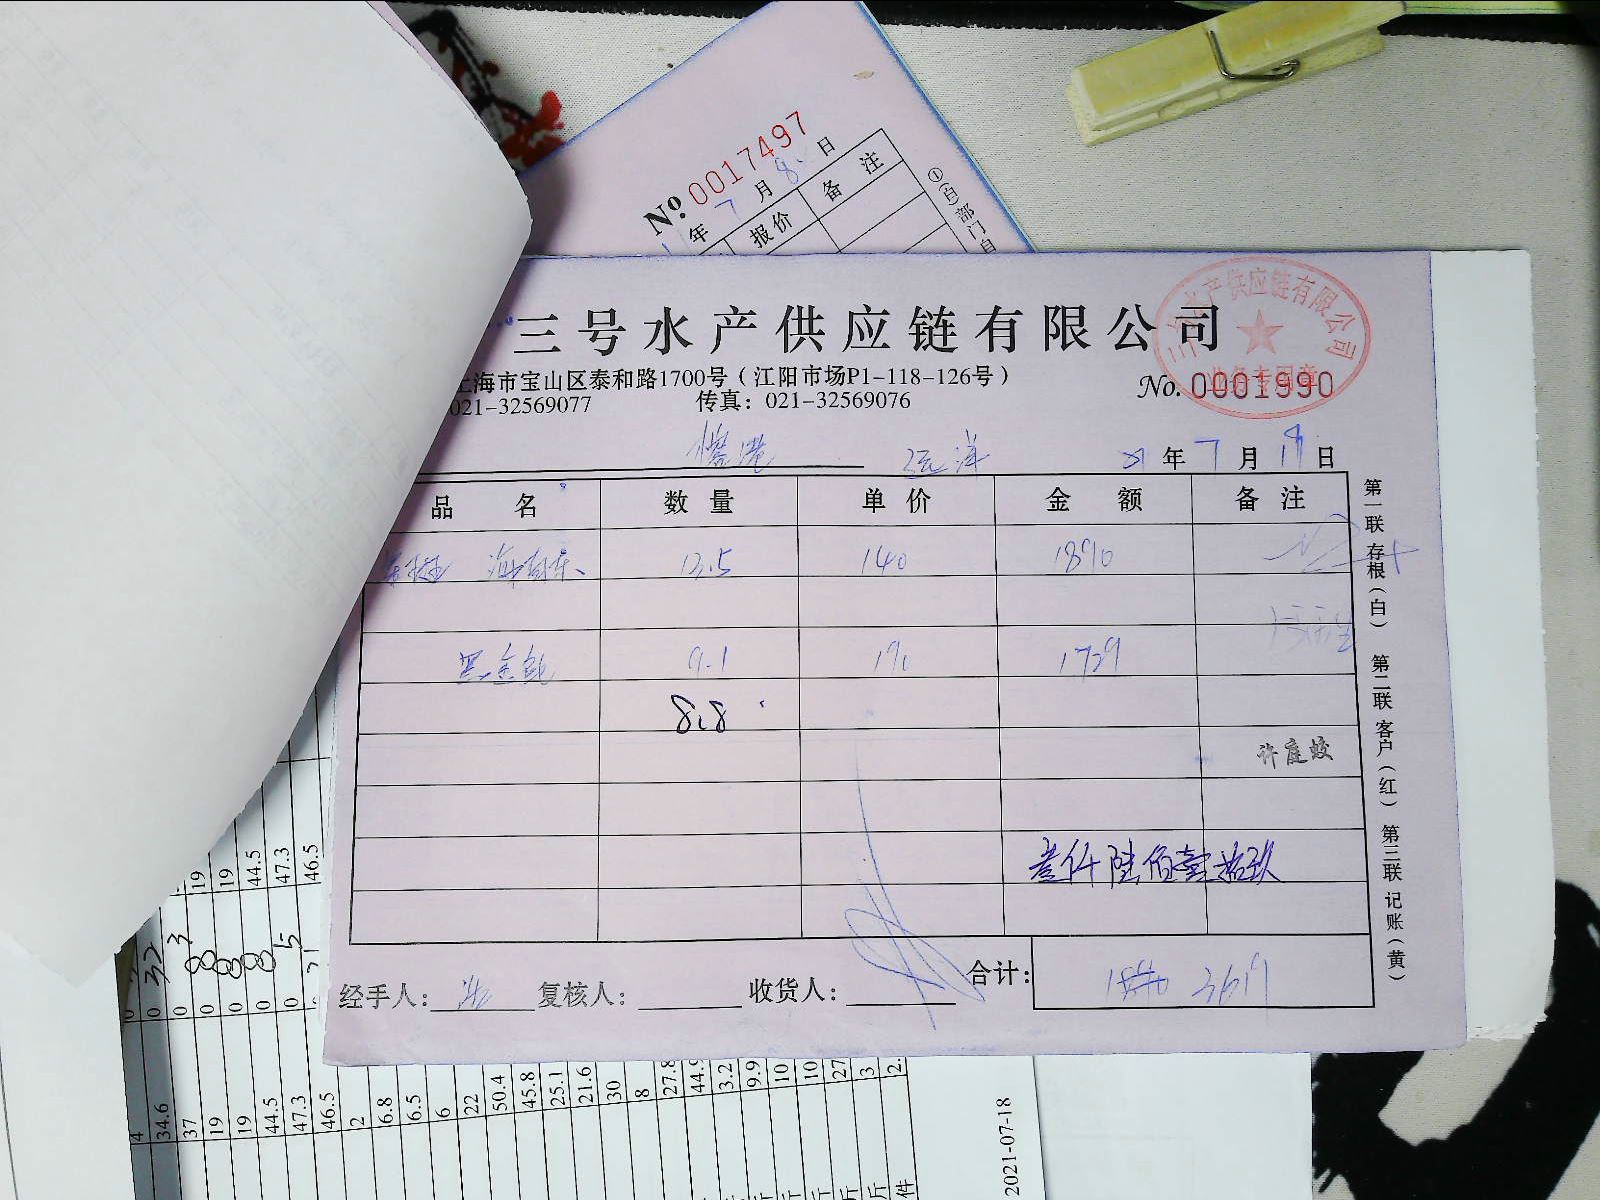 No. 0017497
年 7 月 8 日
报价 备 注
三号水产供应链有限公司
三号水产供应链有限公司
业务专用章
上海市宝山区泰和路1700号（江阳市场P1-118-126号）
No. 0001990
021-32569077 传真：021-32569076
21 年 7 月 18 日
品 名 数 量 单 价 金 额 备 注
13.5 140 1890
9.1 190 1729
8.8
许庭蛟
叁仟陆佰壹拾玖
经手人： 复核人： 收货人： 合计： 3619
第一联 存根（白） 第二联 客户（红） 第三联 记账（黄）
19
19
44.5
47.3
46.5
4
34.6
37
19
19
44.5
47.3
46.5
2
6.8
6.5
6
22
50.4
45.8
25.1
21.6
30
8
27.8
44.9
3.2
9.9
10
10
27
3
2.
斤
斤
斤
斤
件
2021-07-18